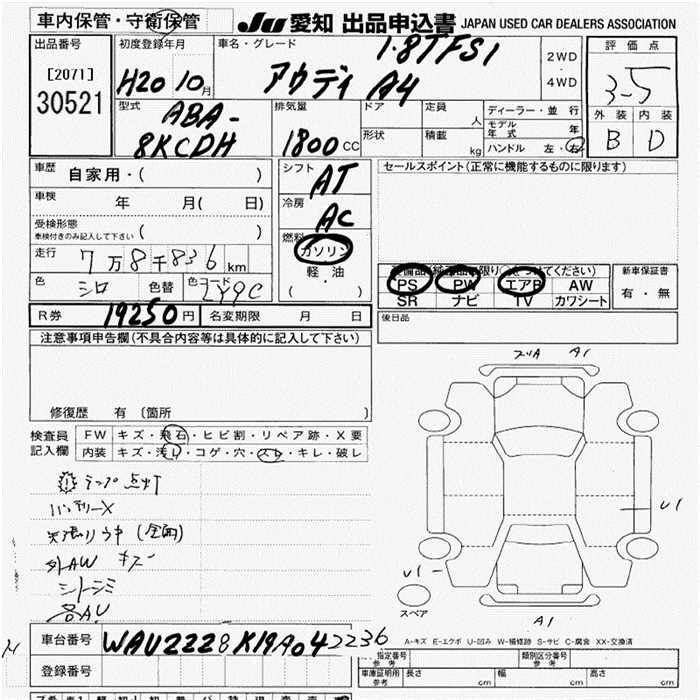 車内保管・守衛保管
JU 愛知 出品申込書 JAPAN USED CAR DEALERS ASSOCIATION
出品番号
[2071]
30521
初度登録年月
H20 10月
車名・グレード
1.8TFSI
アウディ A4
2WD
・
4WD
評価点
3-5
外装 内装
B D
型式
ABA-
8KCDH
排気量
1800 cc
ドア
形状
定員
人
積載
kg
ディーラー・並行
モデル年式
年
ハンドル 左・右
車歴
自家用・( )
車検
年 月( 日)
受検形態
車検付きのみ記入して下さい ( )
走行
7万8千836km
色
シロ
色替
色コード
LY9C
シフト
AT
冷房
AC
燃料
ガソリン
軽・油
( ・ )
セールスポイント(正常に機能するものに限ります)
PS PW エアB AW
SR ナビ TV カワシート
新車保証書
有・無
R券 19250円 名変期限 月 日
後日品
注意事項申告欄(不具合内容等は具体的に記入して下さい)
修復歴 有 (箇所 )
検査員
記入欄
FW キズ・飛石・ヒビ割・リペア跡・X要
内装 キズ・汚レ・コゲ・穴・スレ・キレ・破レ
ランプ点灯
バッテリーX
外AW キズ
A1
U1
U1
A1
スペア
A-キズ E-エクボ U-凹み W-補修跡 S-サビ C-腐食 XX-交換済
車台番号 WAUZZZ8K19A042236
登録番号
指定番号
参考
類別区分番号
参考
車庫証明用
参考
長さ cm 幅 cm 高さ cm